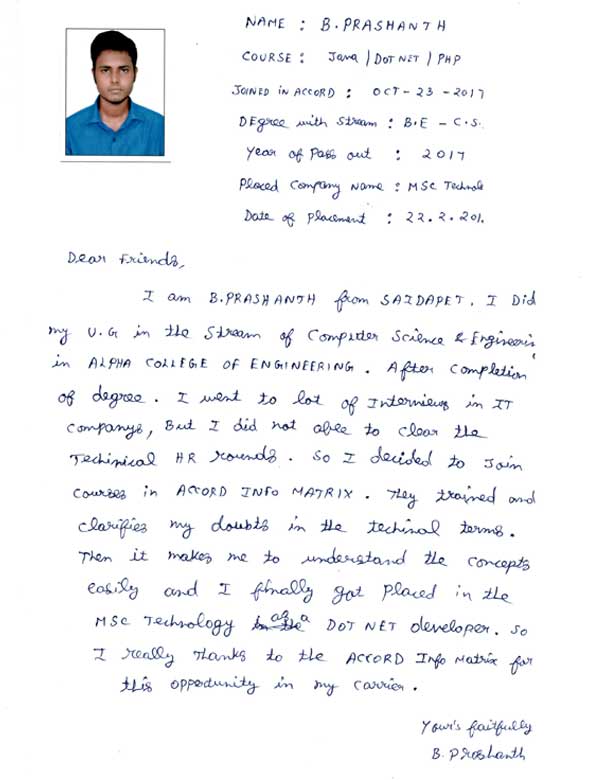 NAME : B.PRASHANTH
COURSE : Java / DOT NET / PHP
JOINED IN ACCORD : OCT - 23 - 2017
DEgree with Stream : B.E - C.S.
Year of Pass out : 2017
Placed Company Name : MSC Technolo
Date of Placement : 22.2.201
Dear Friends,
I am B.PRASHANTH from SAIDAPET. I Did
my U.G in the Stream of Computer Science & Engineerin
in ALPHA COLLEGE OF ENGINEERING. After completion
of degree. I went to lot of Interviews in IT
companys, But I did not able to clear the
Techinical HR rounds. So I decided to Join
Courses in ACCORD INFO MATRIX. They trained and
clarifies my doubts in the techinal terms.
Then it makes me to understand the concepts
easily and I finally got Placed in the
MSC Technology as a DOT NET developer. So
I really Thanks to the ACCORD Info Matrix for
this opportunity in my carrier.
Your's faitfully
B. Prashanth